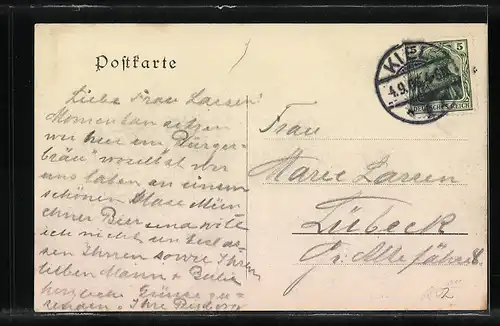 Postkarte
Liebe Frau Larsen!
Momentan sitzen
wir hier im Bürger-
bräu woselbst wir
uns laben an einem
schönen Glase Mün-
chner Bier und will
ich nicht
Ihnen sowie Ihrem
lieben Mann +
herzliche Grüsse zu
senden. Ihre
KIEL
4.9.
5
DEUTSCHES REICH
Frau
Marie Larsen
Lübeck
Gr. Altefähre 8.